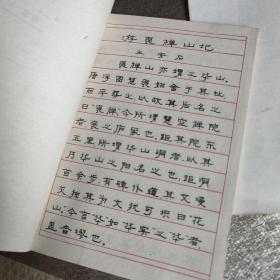 游褒禅山记
王安石
褒禅山亦谓之华山，
唐浮图慧褒始舍于其址，
而卒葬之；以故其后名之
曰“褒禅”。今所谓慧空禅院
者，褒之庐冢也。距其院东
五里，所谓华山洞者，以其
乃华山之阳名之也。距洞
百余步，有碑仆道，其文漫
灭，独其为文犹可识曰“花
山”。今言“华”如“华实”之“华”者，
盖音谬也。